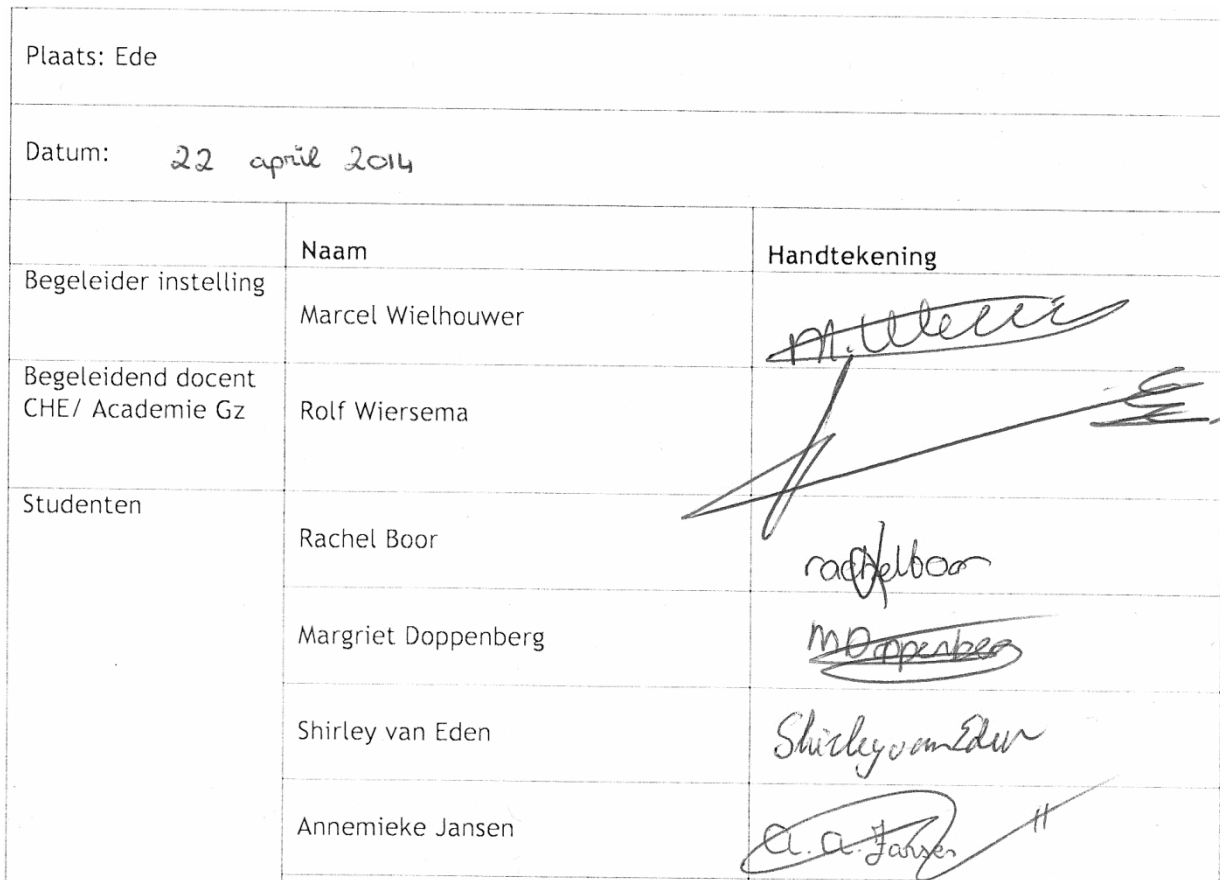 Plaats: Ede
Datum: 22 april 2014
Naam Handtekening
Begeleider instelling
Marcel Wielhouwer
Begeleidend docent
CHE/ Academie Gz
Rolf Wiersema
Studenten
Rachel Boor rachelboor
Margriet Doppenberg MDoppenberg
Shirley van Eden Shirley van Eden
Annemieke Jansen a.a. Jansen